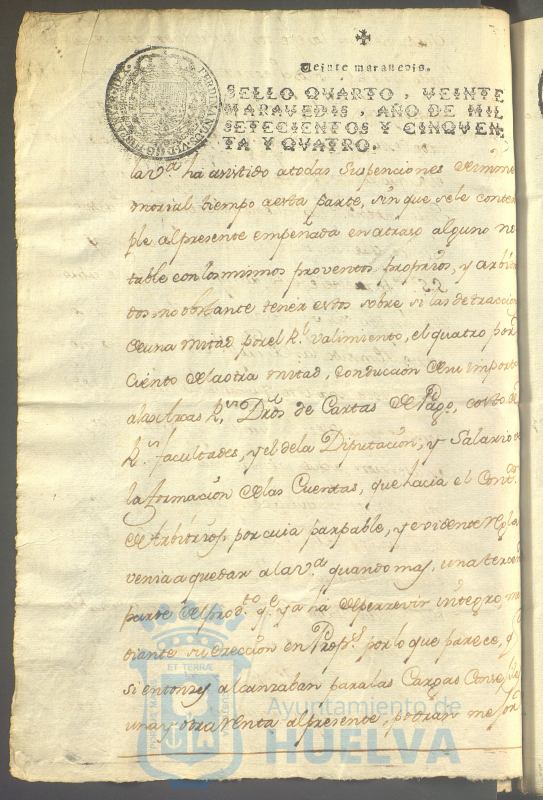 Veinte maravedis.
SELLO QVARTO, VEINTE
MARAVEDIS, AÑO DE MIL
SETECIENTOS Y CINQVEN-
TA Y QVATRO.
la v.ª ha asistido a todas suspenciones de imme
morial tiempo a esta parte, sin que se le contem
ple al presente empeñada en atraso alguno no
table con los mismos proventos proprios, y arbitri
os, no obstante tener estos sobre si las detraccion
de una mitad por el R.l valimiento, el quatro por
ciento de la otra mitad, conducción de su importe
a las Arcas R.s, Dros de Cartas de Pago, costo de
R.s facultades, y el de la Diputación, y Salario de
la formación de las Cuentas, que hacia el Cont.or
de Arbitrios, por cuia palpable, y evidente regla
venia a quedar a la v.ª quando mas, una tercera
parte del prod.to q.e ya ha de percevir integro, me
diante su erección en Prop.s por lo que parece, q
si entonces alcanzaban para las Cargas Conse
una y otra renta al presente, podran mejor
ET TERRÆ
Ayuntamiento de
HUELVA